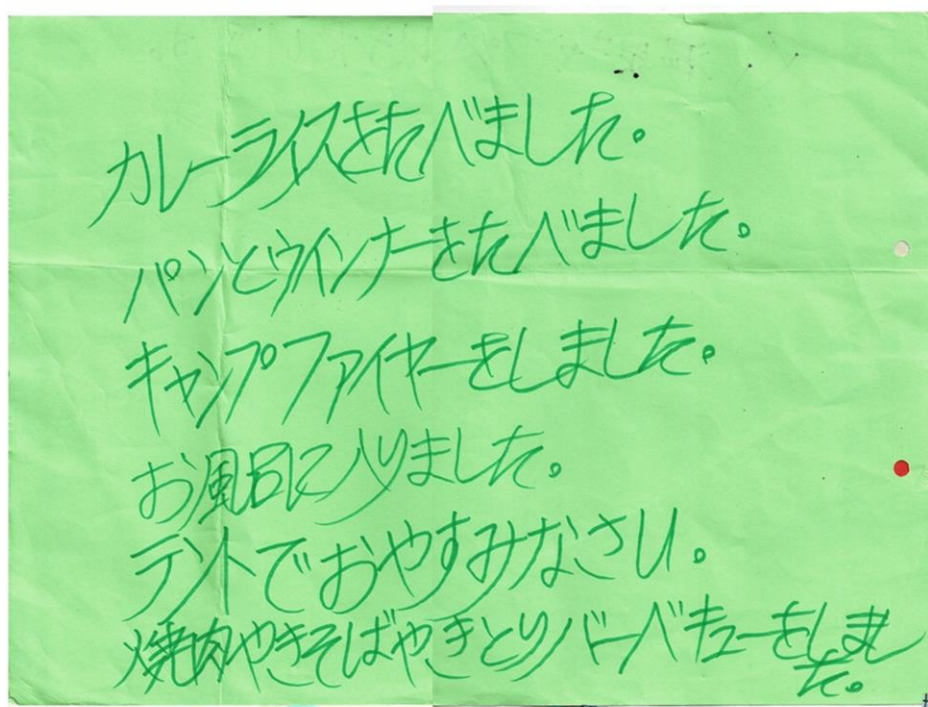 カレーライスをたべました。
パンとウインナーをたべました。
キャンプファイヤーをしました。
お風呂に入りました。
テントでおやすみなさい。
焼肉やきそばやきとりバーベキューをしまし
た。